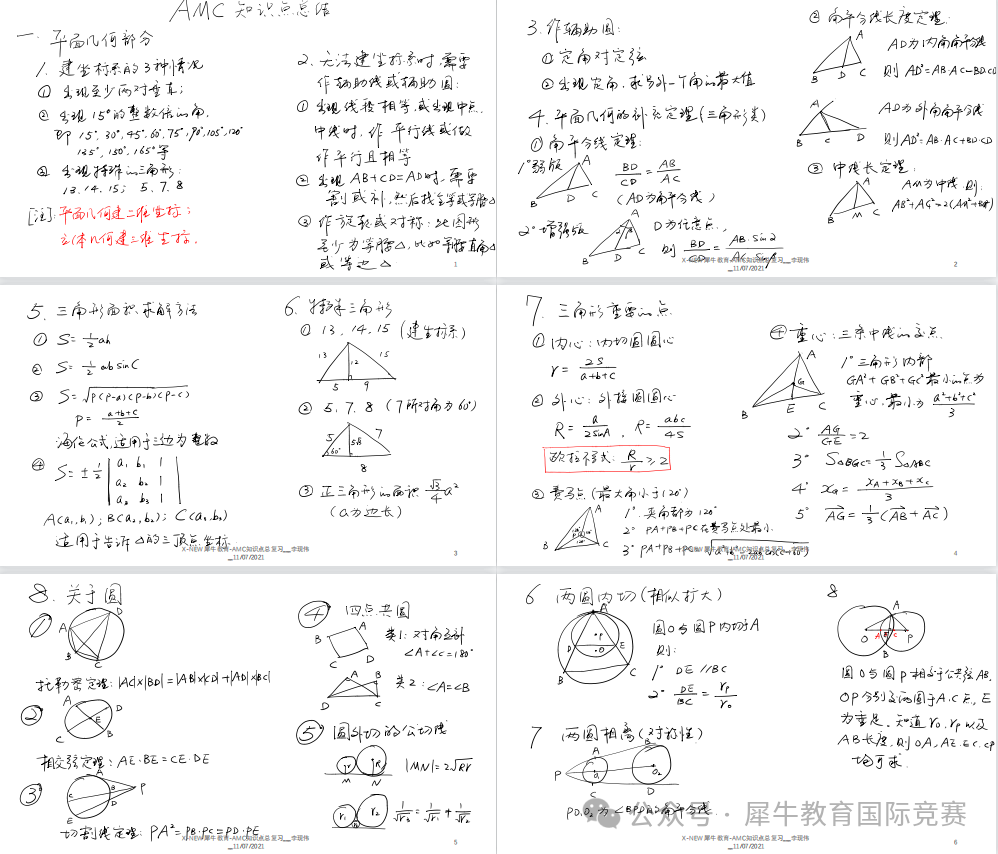 AMC 知识点总结
一. 平面几何部分
1. 建坐标系的3种情况
① 出现至少两对垂直;
② 出现15°的整数倍的角,
即 15°, 30°, 45°, 60°, 75°, 90°, 105°, 120°
135°, 150°, 165° 等
③ 出现特殊的三角形:
13. 14. 15; 5. 7. 8
[注]: 平面几何建二维坐标;
立体几何建三维坐标.
2. 无法建坐标系时, 需要
作辅助线或辅助圆:
① 出现线段相等, 或出现中点.
中线时, 作平行线或做
作平行且相等
② 出现 AB+CD=AD时, 需要
割或补, 然后找全等或等腰△
③ 作旋转或对称: 此图形
至少为等腰△, 比如等腰直角△
或等边△
1
3. 作辅助圆:
① 定角对定弦
② 出现定角, 求另外一个角的最大值
4. 平面几何的补充定理 (三角形类)
① 角平分线定理:
1° 弱版
A
B
D
C
BD/CD = AB/AC
(AD为角平分线)
2° 增强版
A
B
D
C
D为任意点,
则 BD/CD = AB·sin2/AC·sin1
② 角平分线长度定理:
A
B
D
C
AD为内角角平分线
则 AD²=AB·AC−BD·CD
A
B
C
D
AD为外角角平分线
则 AD²=AB·AC+BD·CD
③ 中线长定理:
A
B
M
C
AM为中线. 则:
X-NEW 犀牛教育-AMC知识点总复习__李现伟
_11/07/2021
2
5. 三角形面积求解方法
① S= 1/2 ah
② S= 1/2 ab sin C
③ S= √(P(P-a)(P-b)(P-c))
P= (a+b+c)/2
海伦公式, 适用于三边为整数
④ S= ± 1/2 | a₁ b₁ 1 |
a₂ b₂ 1
a₃ b₃ 1
A(a₁,b₁); B(a₂,b₂); C(a₃,b₃)
适用于告诉△的三顶点坐标
6. 特殊三角形
① 13. 14. 15 (建坐标系)
13
12
15
5
9
② 5. 7. 8 (7所对角为60°)
5
7
60°
8
③ 正三角形的面积 √3/4 a²
(a为边长)
X-NEW 犀牛教育-AMC知识点总复习__李现伟
_11/07/2021
3
7. 三角形重要的点
① 内心: 内切圆圆心
r = 2S/(a+b+c)
② 外心: 外接圆圆心
R = a/(2sinA) , R = abc/4S
欧拉不等式: R/r ≥ 2
③ 费马点 (最大角小于120°)
A
B
C
1° 夹角都为120°
2° PA+PB+PC在费马点处最小
④ 重心: 三条中线的交点
A
G
B
E
C
1° 三角形内部
GA²+GB²+GC²最小的点为
重心, 最小为 (a²+b²+c²)/3
2° AG/GE = 2
3° S△BGC = 1/3 S△ABC
4° x_G = (x_A+x_B+x_C)/3
5° AG = 1/3 (AB + AC)
X-NEW 犀牛教育-AMC知识点总复习__李现伟
_11/07/2021
4
8. 关于圆
①
A
D
B
C
托勒密定理: |AC|×|BD|=|AB|×|CD|+|AD|×|BC|
②
A
D
E
C
B
相交弦定理: AE·BE=CE·DE
③
A
B
P
C
D
E
切割线定理: PA²=PB·PC=PD·PE
④ 四点共圆
A
B
C
D
类1: 对角互补
∠A+∠C=180°
A
B
D
C
类2: ∠A=∠B
⑤ 圆外切的公切线
r
R
M
N
|MN|=2√Rr
r₁
r₃
r₂
1/√r₃ = 1/√r₁ + 1/√r₂
X-NEW 犀牛教育-AMC知识点总复习__李现伟
_11/07/2021
5
6 两圆内切 (相似扩大)
A
P
D
O
E
B
C
圆O与圆P内切于A
则:
1° DE//BC
2° DE/BC = r_P/r_O
7 两圆相离 (对称性)
P
A
B
O₂
C
D
PO₁O₂为∠BPD的角平分线
8
A
O
A
E
C
P
B
圆O与圆P相交于公共弦AB,
OP分别交两圆于A.C点, E
为垂足. 知道r_O, r_P以及
AB长度, 则OA, AE, EC, CP
均可求.
X-NEW 犀牛教育-AMC知识点总复习__李现伟
_11/07/2021
6
公众号 · 犀牛教育国际竞赛